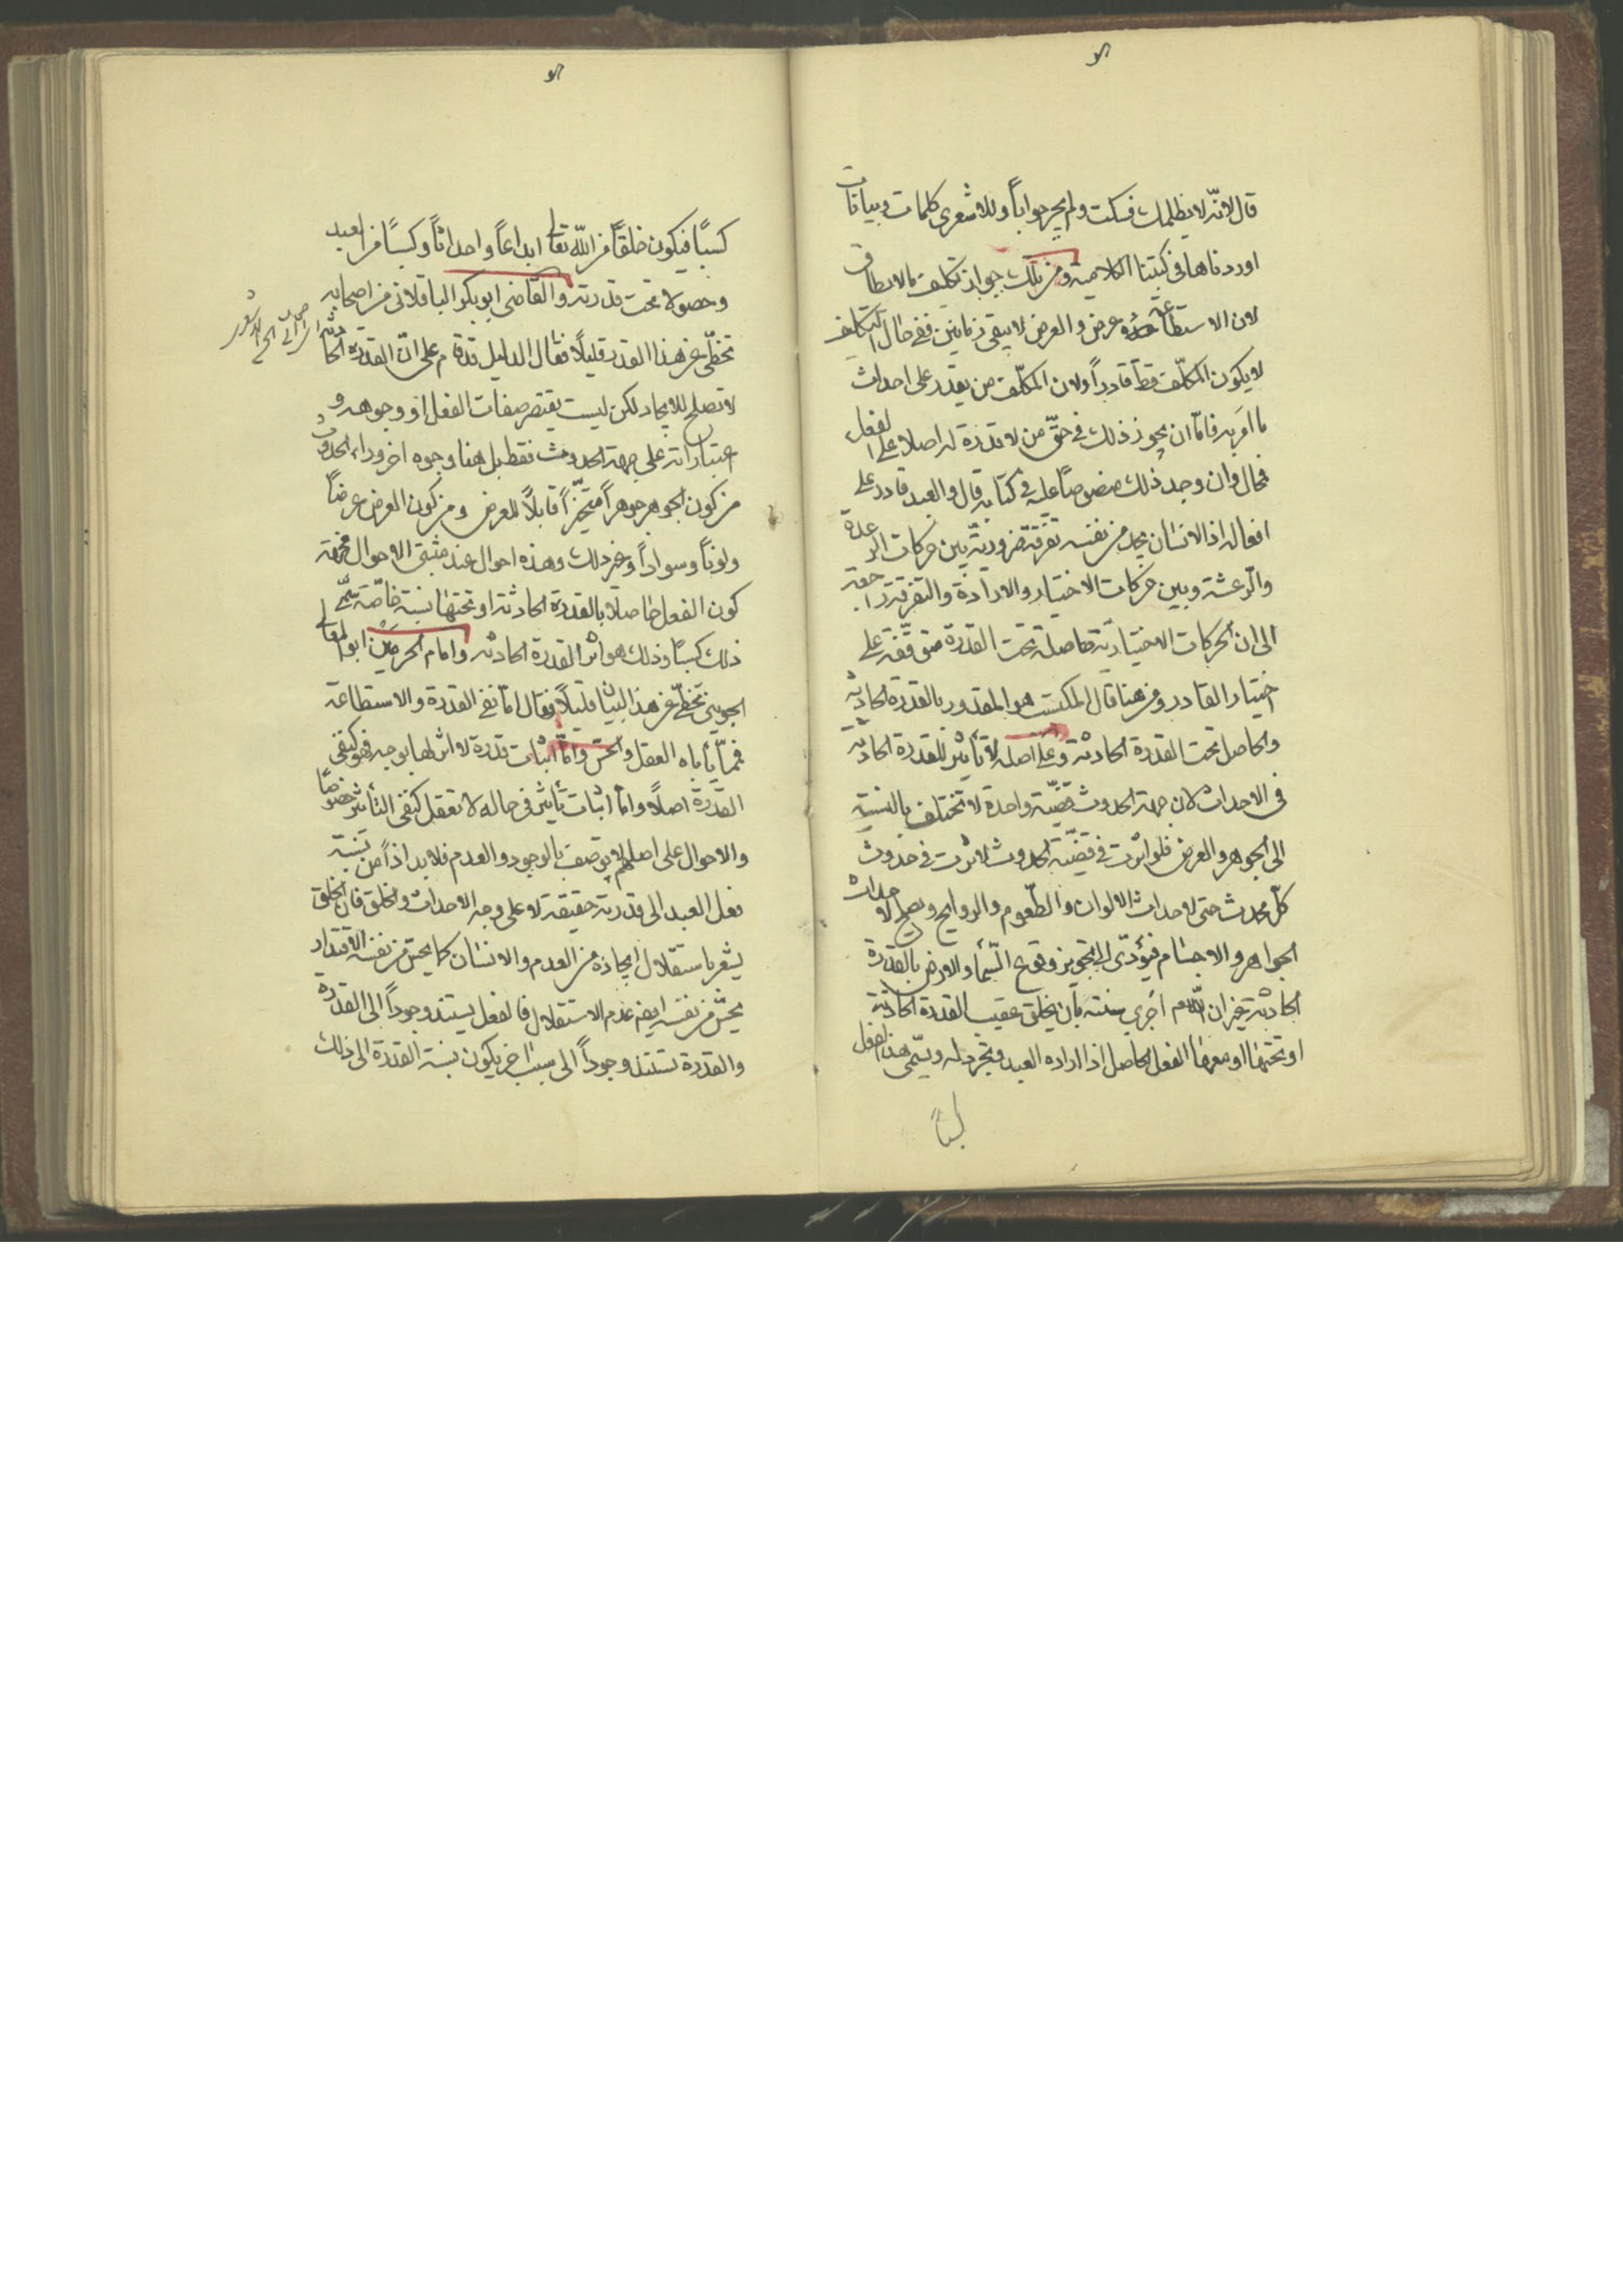 قال لانه لا يظلمك فسكت ولم يحر جواباً وللاشعري كلمات وبيانات
اوردناها في كتبنا الكلامية ومن ذلك جواز تكليف ما لا يطاق
لان الاستطاعة عرض والعرض لا يبقى زمانين ففي حال التكليف
لا يكون المكلّف قط قادراً ولان المكلّف من يقدر على احداث
ما امر به فامّا ان يجوز ذلك في حقّ من لا قدرة له اصلا على الفعل
فحال وان وجد ذلك منصوصاً عليه في كتابه قال والعبد قادر على
افعاله اذ الانسان يجد من نفسه تفرقة ضرورية بين حركات الرعدة
والرعشة وبين حركات الاختيار والارادة والتفرقة راجعة
الى ان الحركات الاختيارية حاصلة تحت القدرة متوقّفة على
اختيار القادر ومن هنا قال المكتسب هو المقدور بالقدرة الحادثة
والحاصل تحت القدرة الحادثة وعلى اصله لا تأثير للقدرة الحادثة
في الاحداث لان جهة الحدوث قضيّة واحدة لا تختلف بالنسبة
الى الجوهر والعرض فلو اثرت في قضيّة الحدوث لاثرت في حدوث
كلّ محدث حتى لاحداث الالوان والطعوم والروايح ويصلح لاحداث
الجواهر والاجسام فيؤدّى الى تجويز وقوع السّمآء والارض بالقدرة
الحادثة غير ان الله اجرى سنته بان يخلق عقيب القدرة الحادثة
او تحتها او معها الفعل الحاصل اذا اراده العبد وتجرد له ويسمّى هذا الفعل
كسباً
كسبًا فيكون خلقًا من الله تعالى ابداعاً واحداثاً وكسبًا من العبد
وحصولا تحت قدرته والقاضى ابو بكر الباقلانى من اصحابه
تخطّى عن هذا القدر قليلاً فقال الدليل قد قام على انّ القدرة الحادثة
لا تصلح للايجاد لكن ليست يقتصر صفات الفعل او وجوهه و
اعتباراته على جهة الحدوث فقط بل هنا وجوه اخر وراء الحدوث
من كون الجوهر جوهراً متحيّزاً قابلاً للعرض ومن كون العرض عرضاً
ولوناً وسواداً وغير ذلك وهذه احوال عند مثبتي الاحوال فجهة
كون الفعل حاصلا بالقدرة الحادثة او تحتها نسبة خاصّة يسمّى
ذلك كسبًا وذلك هو اثر القدرة الحادثه وامام الحرمين ابو المعالى
الجويني تخطّى عن هذا البيان قليلاً فقال امّا نفى القدرة والاستطاعة
فممّا يأباه العقل والحسّ وامّا اثبات قدرة لا اثر لها بوجه فهو كنفى
القدرة اصلًا وامّا اثبات تأثير في حاله لا تعقل كنفى التأثير خصوصًا
والاحوال على اصلهم لا توصف بالوجود والعدم فلا بد اذاً من نسبة
فعل العبد الى قدرته حقيقة لا على وجه الاحداث والخلق فان الخلق
يشعر باستقلال ايجاده من العدم والانسان كما يحسّ من نفسه الاقتدار
يحسّ من نفسه ايضا عدم الاستقلال فالفعل يستند وجوداً الى القدرة
والقدرة تستند وجوداً الى سبب اخر يكون نسبة القدرة الى ذلك